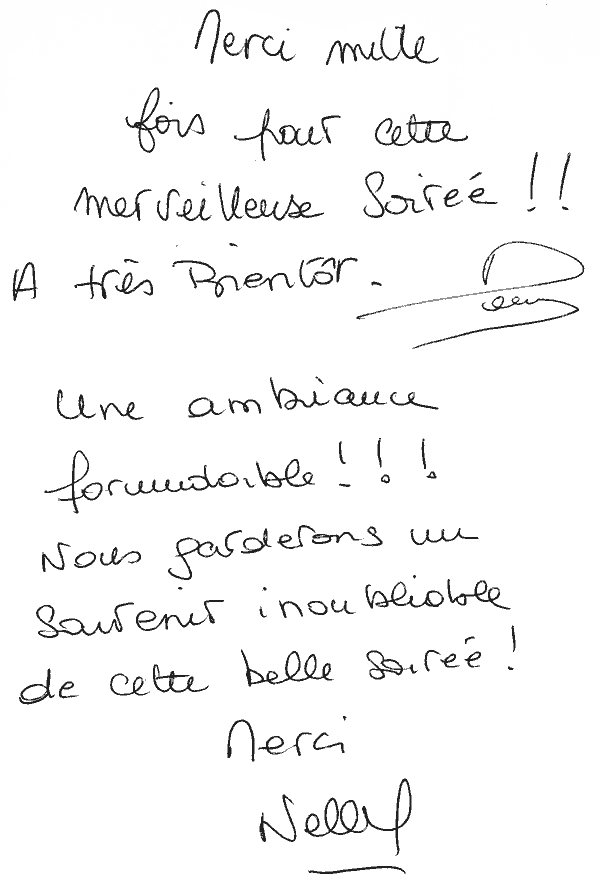 Merci mille
fois pour cette
merveilleuse Soireé !!
A très Bientôt.
Une ambiance
formidable ! ! !
Nous garderons un
Souvenir inoubliable
de cette belle soireé !
Merci
Nelly